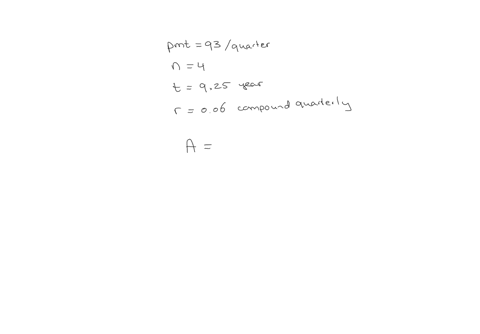 pmt = 93 /quarter
n = 4
t = 9.25 year
r = 0.06 compound quarterly
A =